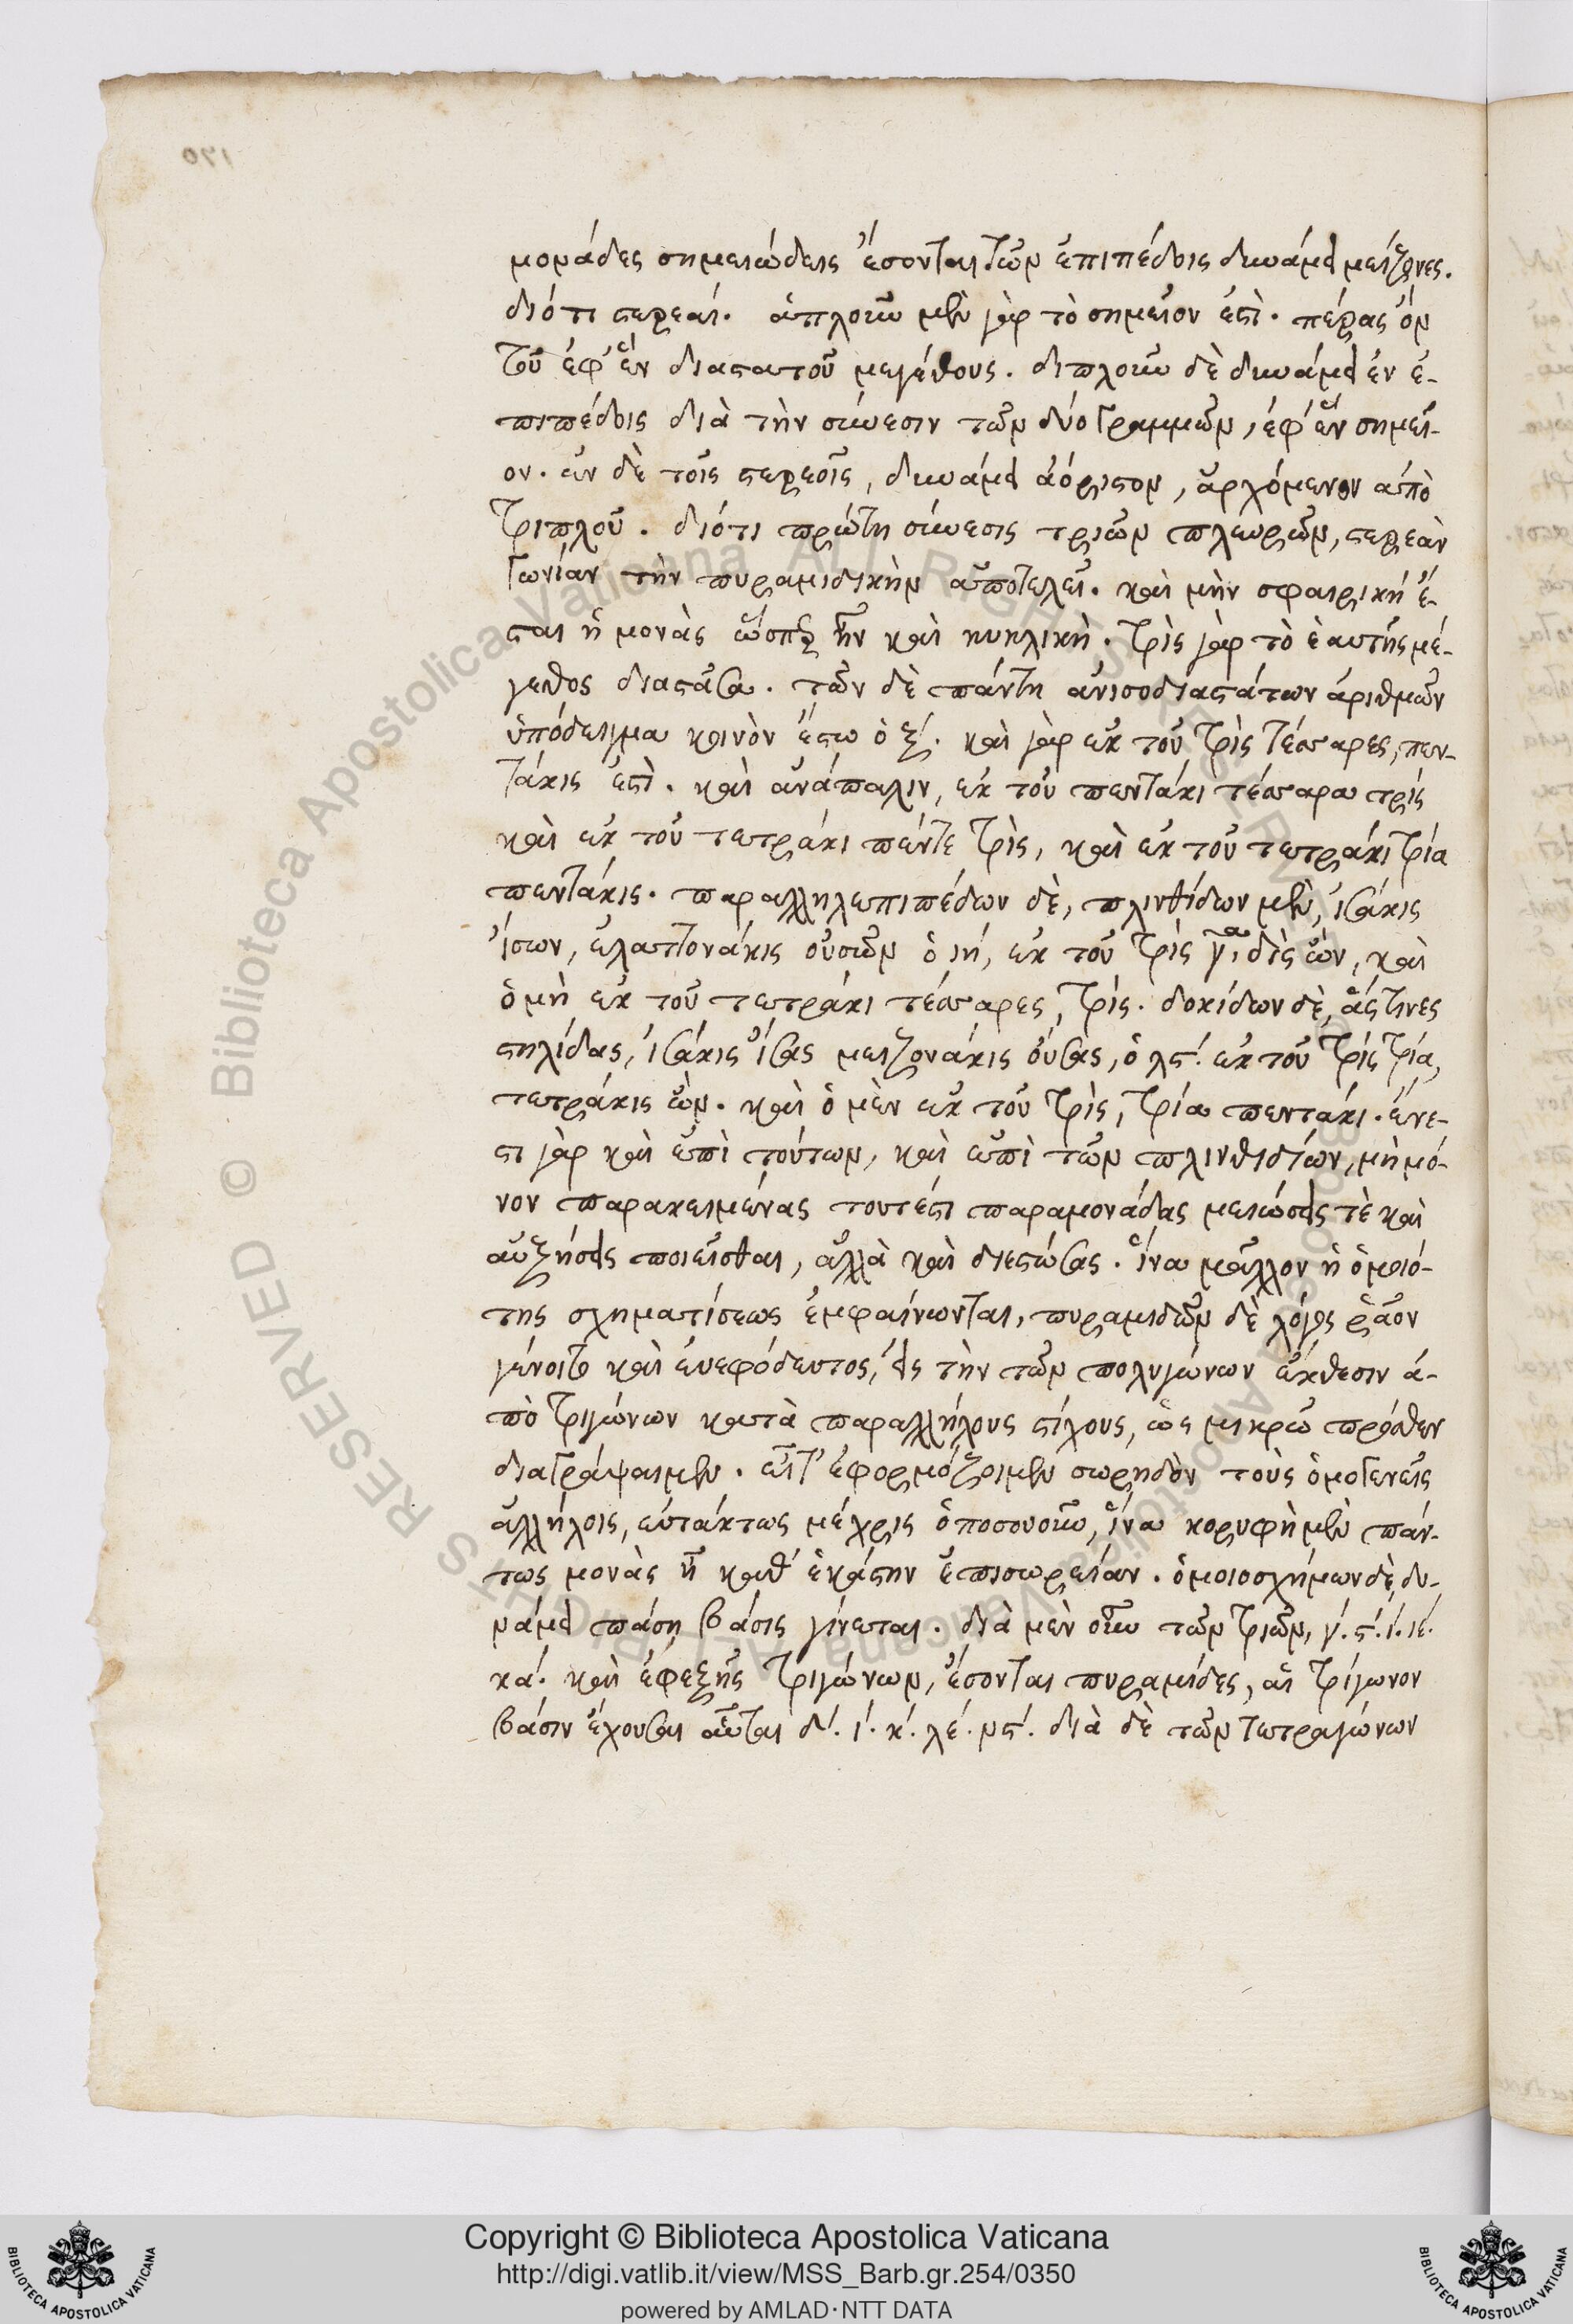 μονάδες σημειώδεις ἔσονται τῶν ἐπιπέδοις δυνάμει μείζονες.
διότι στερεαί. ἁπλοῦν μὲν γὰρ τὸ σημεῖον ἐστὶ. πέρας ὂν
τοῦ ἐφ' ἓν διαστατοῦ μεγέθους. διπλοῦν δὲ δυνάμει ἐν ἐ-
πιπέδοις διὰ τὴν σύνεσιν τῶν δύο γραμμῶν, ἐφ' ἓν σημεῖ-
ον. ἐν δὲ τοῖς στερεοῖς, δυνάμει ἀόριστον, ἀρχόμενον ἀπὸ
τριπλοῦ. διότι πρώτη σύνεσις τριῶν πλευρῶν, στερεὰν
γωνίαν τὴν πυραμιδικὴν ἀποτελεῖ. καὶ μὴν σφαιρική ἔ-
σται ἡ μονὰς ὥσπερ ἦν καὶ κυκλική. τρὶς γὰρ τὸ ἑαυτῆς μέ-
γεθος διαστᾶσα. τῶν δὲ πάντη ἀνισοδιαστάτων ἀριθμῶν
ὑπόδειγμα κοινὸν ἔστω ὁ ξ'. καὶ γὰρ ἐκ τοῦ τρὶς τέσσαρες, πεν-
τάκις ἐστὶ. καὶ ἀνάπαλιν, ἐκ τοῦ πεντάκι τέσσαρα τρίς
καὶ ἐκ τοῦ τετράκι πέντε τρὶς, καὶ ἐκ τοῦ τετράκι τρία
πεντάκις. παραλληλεπιπέδων δὲ, πλινθίδων μὲν, ἰσάκις
ἴσων, ἐλαττονάκις οὐσῶν ὁ ιή, ἐκ τοῦ τρὶς γ, δὶς ὢν, καὶ
ὁ μὴ ἐκ τοῦ τετράκι τέσσαρες, τρίς. δοκίδων δὲ, ἅς τινες
στηλίδας, ἰσάκις ἴσας μειζονάκις οὔσας, ὁ λς'. ἐκ τοῦ τρὶς τρία,
τετράκις ὢν. καὶ ὁ μὲν ἐκ τοῦ τρὶς, τρία πεντάκι. ἔνε-
στι γὰρ καὶ ἐπὶ τούτων, καὶ ἐπὶ τῶν πλινθιδίων, μὴ μό-
νον παρακειμένας τουτέστι παραμονάδας μειώσεις τὲ καὶ
αὐξήσεις ποιεῖσθαι, ἀλλὰ καὶ διεστώσας. ἵνα μᾶλλον ἡ ὁμοιό-
της σχηματίσεως ἐμφαίνωνται, πυραμιδῶν δὲ λόγος ῥᾶον
γένοιτο καὶ εὐεφόδευτος, εἰς τὴν τῶν πολυγώνων ἔκθεσιν ἀ-
πὸ τριγώνων κατὰ παραλλήλους στίχους, ὡς μικρῶ πρόσθεν
διαγράψαιμεν. εἶτ' ἐφορμόζοιμεν σωρηδὸν τοὺς ὁμογενεῖς
ἀλλήλοις, εὐτάκτως μέχρις ὁποσουοῦν, ἵνα κορυφὴ μὲν πάν-
τως μονὰς ᾖ καθ' ἑκάστην ἐπισωρείαν. ὁμοιοσχήμων δὲ, δυ-
νάμει πάση βάσις γίνεται. διὰ μὲν οὖν τῶν τριῶν, γ'. ς'. ί. ιέ.
κά. καὶ ἐφεξῆς τριγώνων, ἔσονται πυραμίδες, αἳ τρίγωνον
βάσιν ἔχουσαι αὗται δ'. ί. κ'. λέ. νς'. διὰ δὲ τῶν τετραγώνων
Copyright © Biblioteca Apostolica Vaticana
http://digi.vatlib.it/view/MSS_Barb.gr.254/0350
powered by AMLAD·NTT DATA